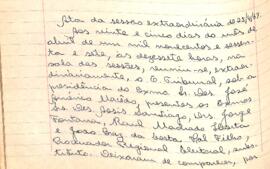 Ata da sessão extraordinária de 25/4/67.
Aos vinte e cinco dias do mês de
abril de um mil novecentos e sessen-
ta e sete, às dezessete horas, na
sala das sessões, reuniu-se, extraor-
dinariamente, o E. Tribunal, sob a
presidência do Exmo Sr. Des. José
Américo Macêdo, presentes os Exmos
Srs. Des. Assis Santiago, Drs. Jorge
Fontana, Raul Machado Horta
e João Braz da Costa Val Filho,
Procurador Regional Eleitoral, subs-
tituto. Deixaram de comparecer, por